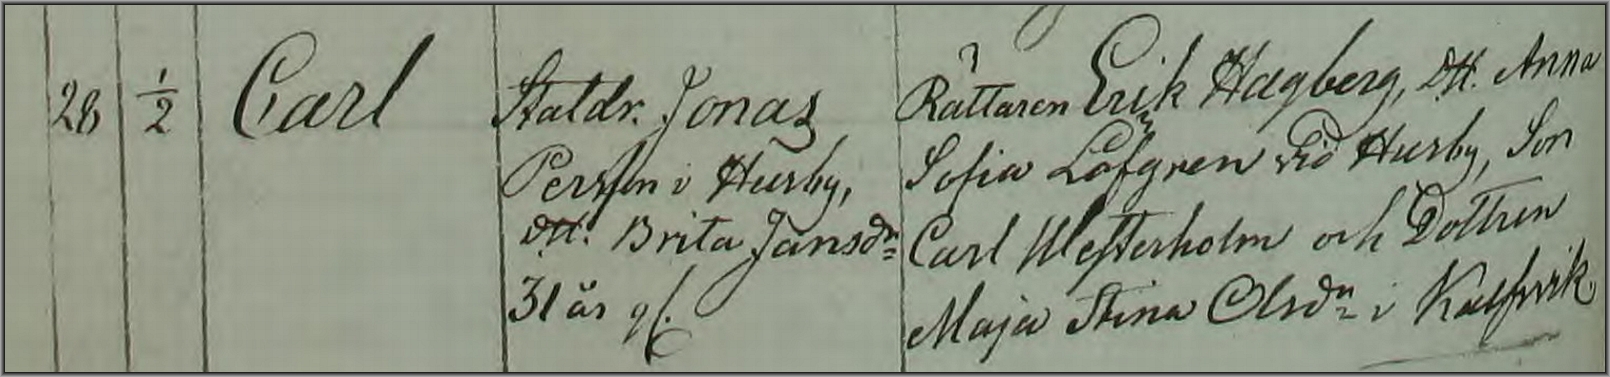 28 1/2 Carl
Staldr. Jonas
Person i Husby,
Htt. Brita Jansdr
31 år gl.
Rättaren Erik Hagberg, Htt. Anna
Sofia Löfgren vid Husby, Son
Carl Westerholm och Dottren
Maja Stina Olsdr i Kalfvik